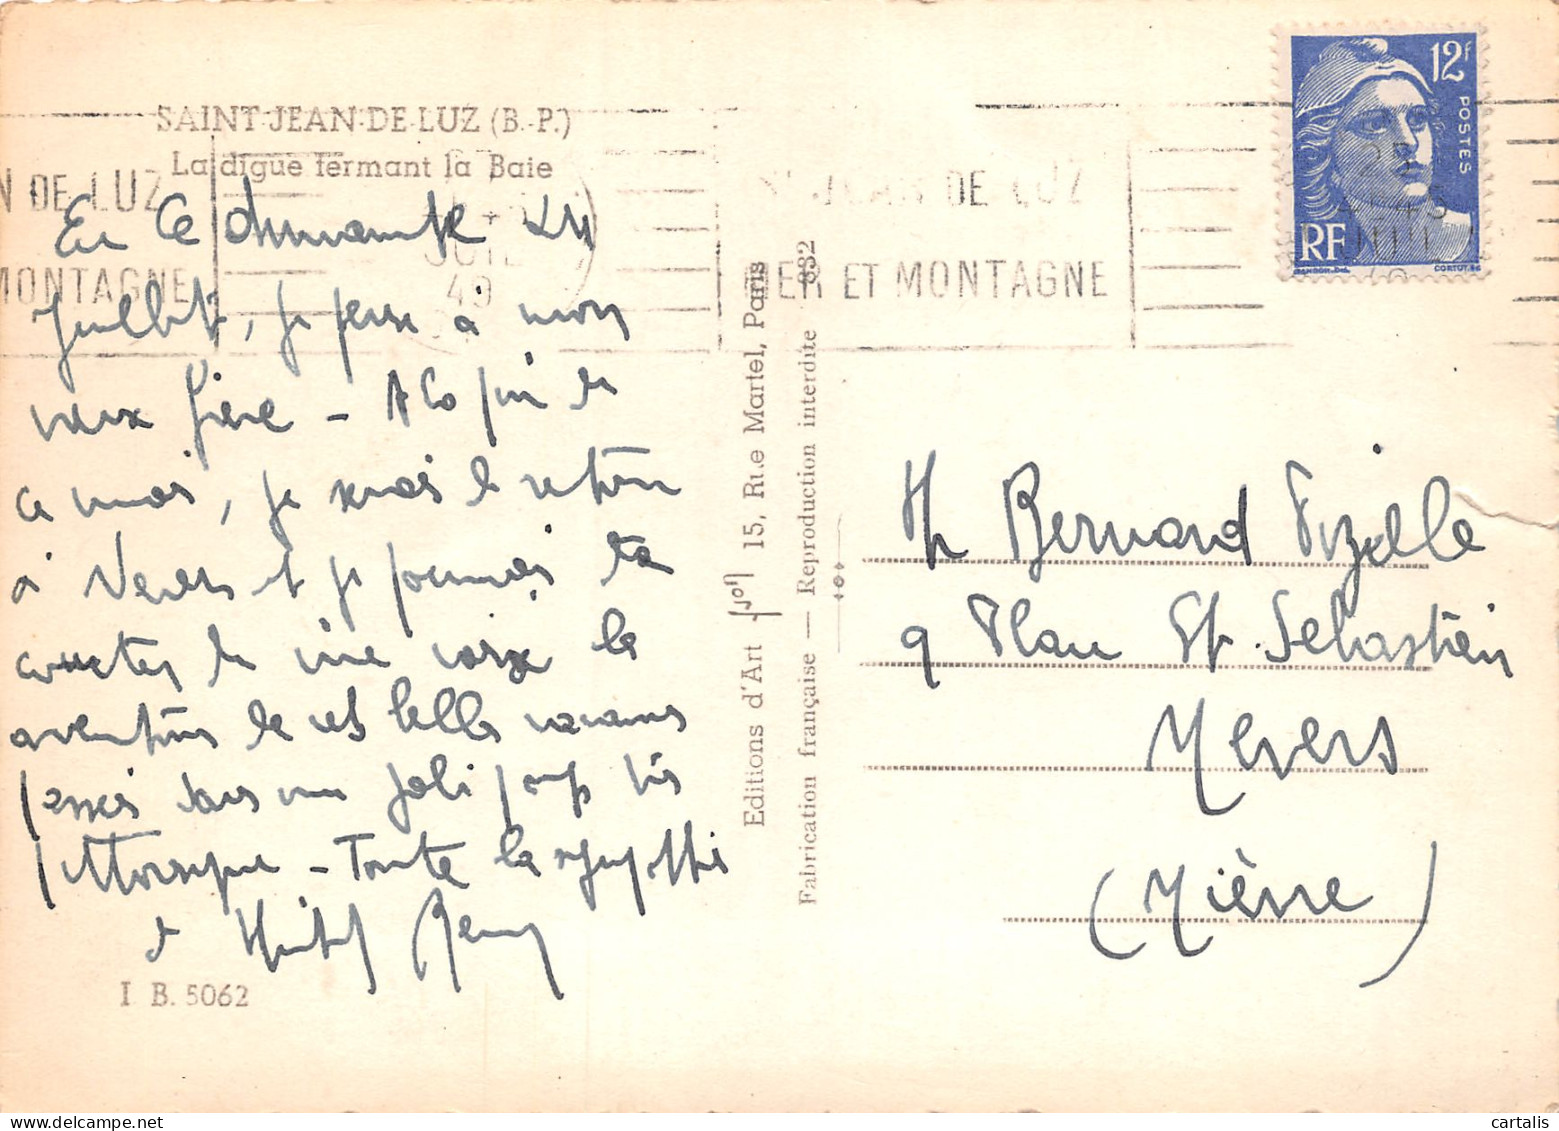 SAINT-JEAN-DE-LUZ (B.-P.)
La digue fermant la Baie
N DE LUZ
MONTAGNE
JUIL
49
ST JEAN DE LUZ
MER ET MONTAGNE
12F
POSTES
RF
CORTOT SC
25
En ce dimanche 24
Juillet, je pense à mon
vieux frère - A la fin de
ce mois, je serais de retour
à Nevers et je pourrais te
conter de vive voix les
aventures de ces belles vacances
passées dans un joli pays très
pittoresque - Toute la sympathie
de
Remy
I B. 5062
Editions d'Art Yvon 15, Rue Martel, Paris
Fabrication française — Reproduction interdite 332
Mr Bernard Vizelle
9 Place St. Sébastien
Nevers
(Nièvre)